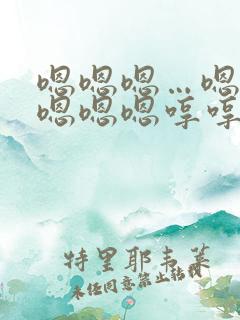 嗯嗯嗯…嗯
嗯嗯嗯哼哼
特里耶韦莱
未经同意禁止转载